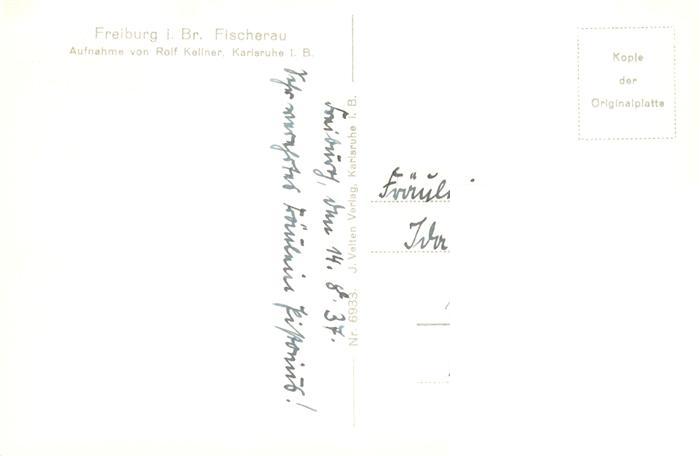 Freiburg i. Br. Fischerau
Aufnahme von Rolf Kellner, Karlsruhe i. B.
Kopie
der
Originalplatte
Nr. 6933. J. Velten Verlag, Karlsruhe i. B.
Freiburg, den 14. 8. 37.
Sehr verehrtes Fräulein
Fräulei
Ida